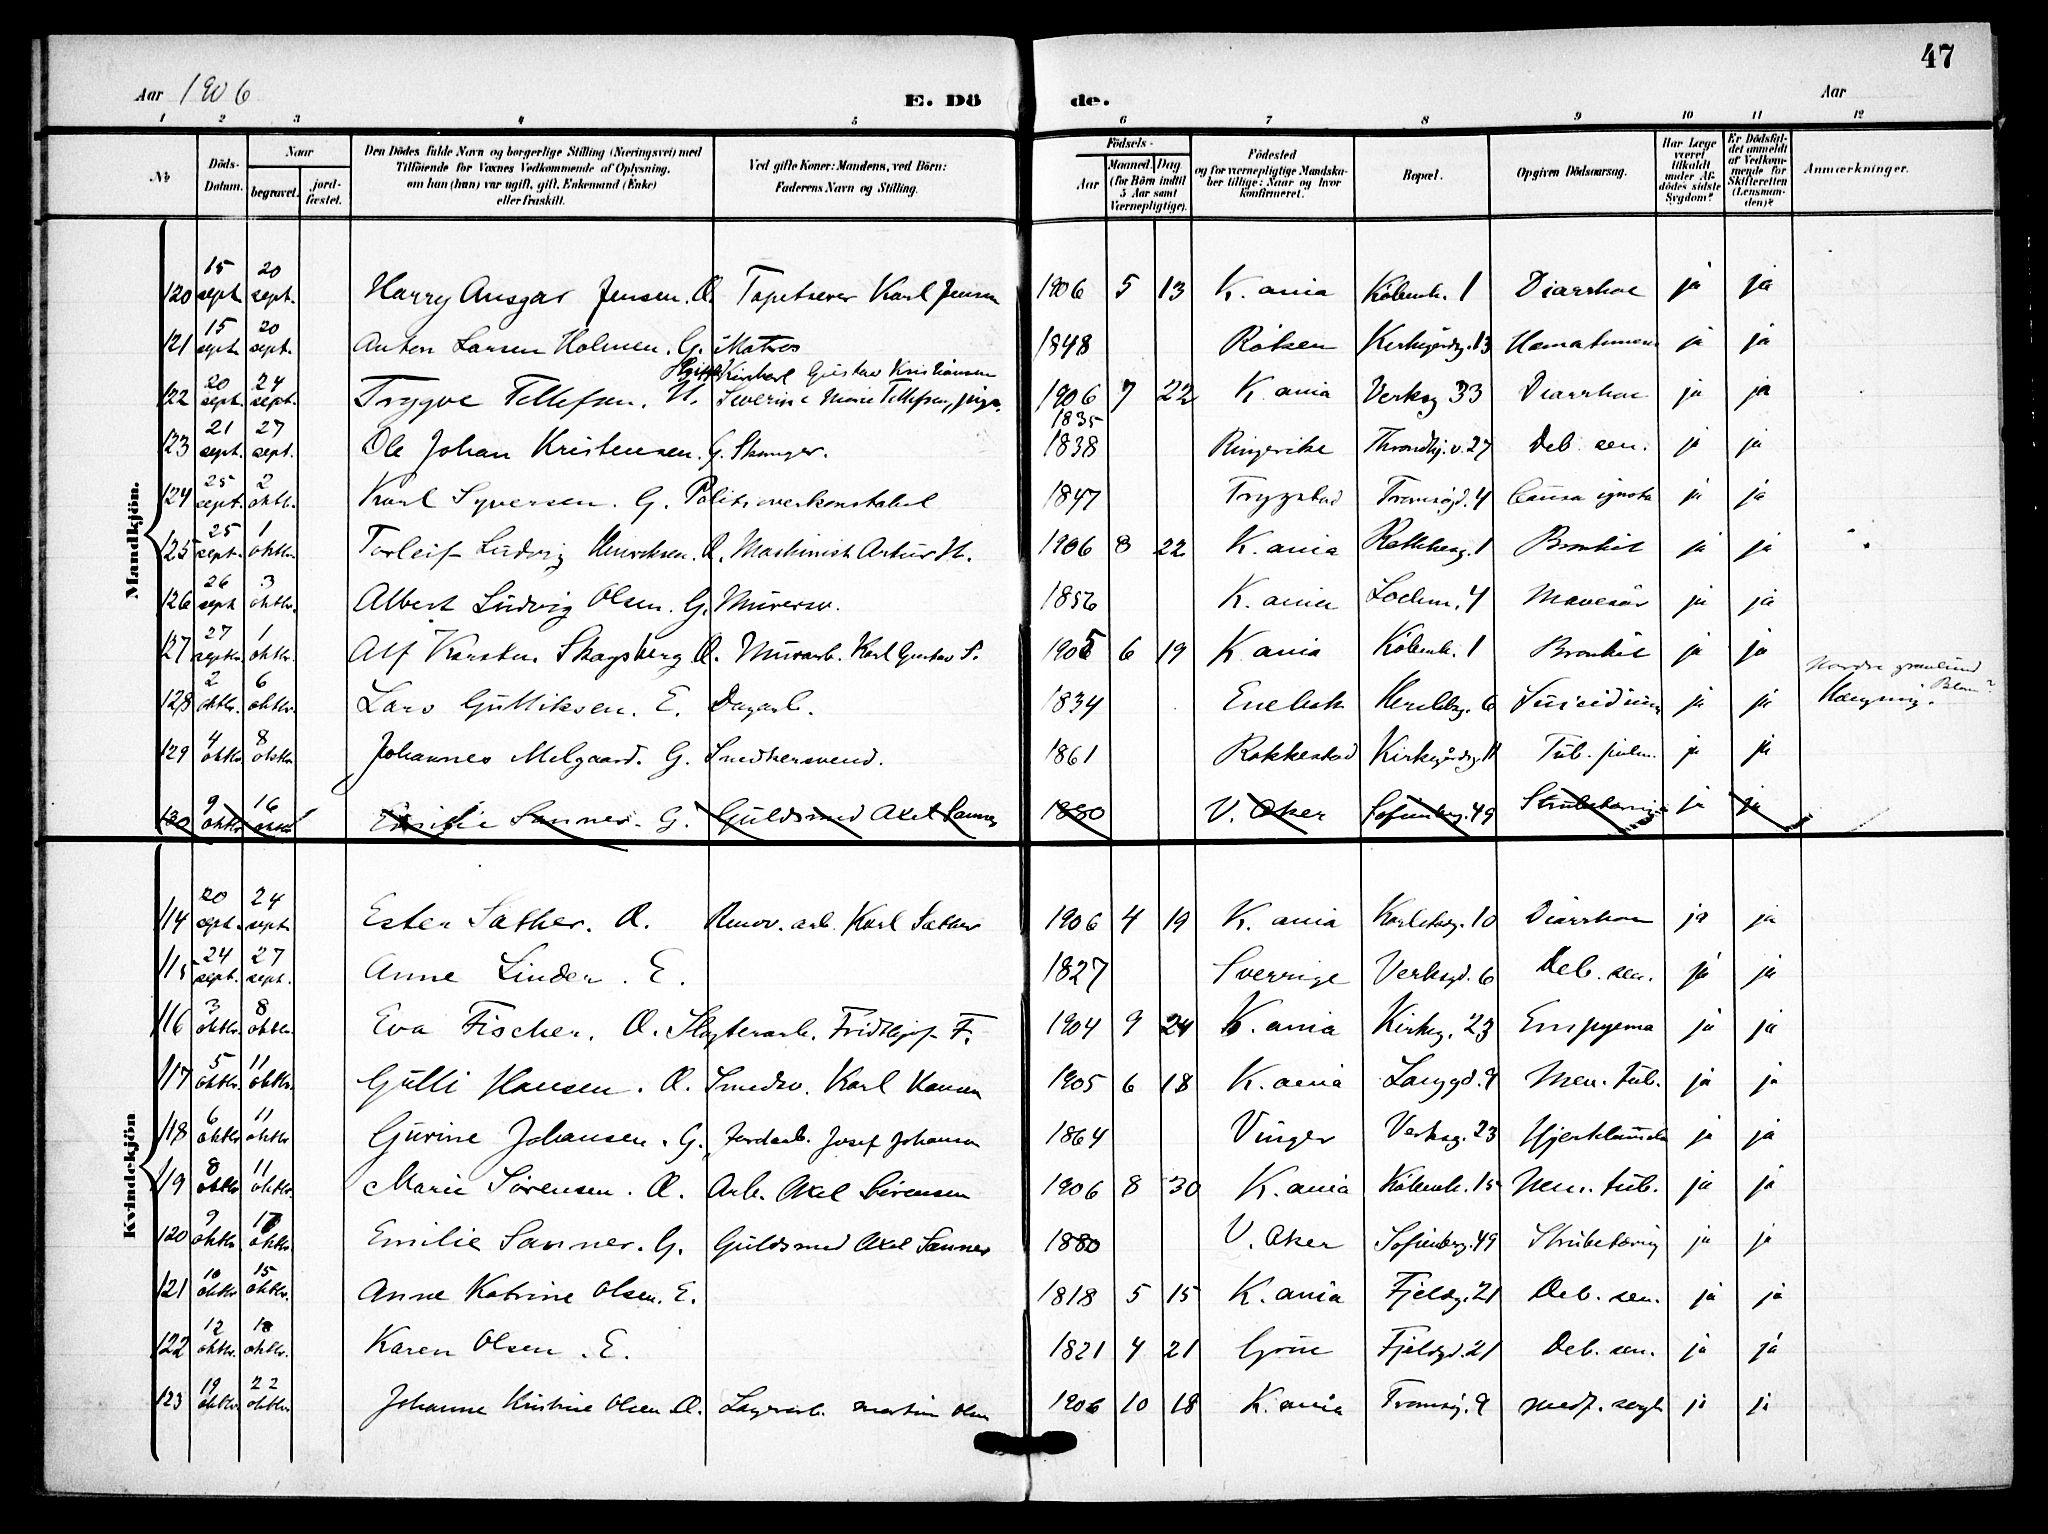 47
Aar 1906
E. Dö de.
Aar
1 2 3 4 5 6 7 8 9 10 11 12
No
Döds-Datum.
Naar
begravet.
jord-fæstet.
Den Dödes fulde Navn og borgerlige Stilling (Næringsvei) med Tilföiende for Voxnes Vedkommende af Oplysning, om han (hun) var ugift, gift, Enkemand (Enke) eller fraskilt.
Ved gifte Koner: Mandens, ved Börn: Faderens Navn og Stilling.
Födsels-
Aar
Maaned. Dag
(for Börn indtil 5 Aar samt Værnepligtige).
Födested og for værnepligtige Mandska-ber tillige: Naar og hvor konfirmeret.
Bopæl.
Opgiven Dödsaarsag.
Har Læge været tilkaldt under Af-dödes sidste Sygdom?
Er Dödsfal-det anmeldt af Vedkom-mende for Skifteretten (Lensman-den)?
Anmærkninger.
Mandkjön.
120 15 sept. 20 sept. Harry Ansgar Jensen. U. Tapetserer Karl Jensen 1906 5 13 K.ania Københ. 1 Diarrhoe ja ja
121 15 sept. 20 sept. Anton Larsen Holmen. G. Matros 1848 Röken Kirkegårdsg. 13 ja ja
122 20 sept. 24 sept. Trygve Tellefsen. U. Gustav Kristiansen Severine Marie Tellefsen, pige. 1906 7 22 K.ania Verksg 33 Diarrhoe ja ja
123 21 sept. 27 sept. Ole Johan Kristensen. G. 1835 1838 Ringerike Throndhj.v. 27 Deb. sen. ja ja
124 25 sept. 2 oktbr. Karl Syversen. G. Politioverkonstabel 1847 Trygstad Tromsögd. 4 Causa ignota ja ja
125 25 sept. 1 oktbr. Torleif Ludvig Henriksen. U. Maskinist Artur H. 1906 8 22 K.ania Rathkesg. 1 Bronkit ja ja
126 26 sept 3 oktbr. Albert Ludvig Olsen. G. Murersv. 1856 K.ania 4 Mavesår ja ja
127 27 septbr. 1 oktbr. Alf Karsten Skogsberg U. Murarb. Karl Gustav S. 1905 6 19 K.ania Københ. 1 Bronkit ja ja
128 2 oktbr. 6 oktbr. Lars Gulliksen. E. Dagarb. 1834 Enebak Herslebg. 6 Suicidium ja ja Nordre gravlund Hængning.
129 4 oktbr. 8 oktbr. Johannes Melgaard. G. Smedkersvend. 1861 Rakkestad Kirkegårdsg. 11 Tub. pulm. ja ja
130 9 oktbr 16 oktbr Emilie Sanner. G. Guldsmed Axel Sanner 1880 V. Aker Sofienberg. 49 Strubetæring ja ja
Kvindekjön
114 20 sept. 24 sept. Ester Sæther. U. Renov. arb. Karl Sæther 1906 4 19 K.ania Karlsborg. 10 Diarrhoe ja ja
115 24 sept. 27 sept. Anne Linder. E. 1827 Sverrige Verksgd. 6 Deb. sen. ja ja
116 3 oktbr. 8 oktbr. Eva Fischer. U. Slagterarb. Fridthjof F. 1904 9 24 K.ania Kirkeg. 23 Empyema ja ja
117 5 oktbr. 11 oktbr. Gulli Hansen. U. Smedsv. Karl Hansen 1905 6 18 K.ania Langgd. 9 Men. tub. ja ja
118 6 oktbr 11 oktbr. Gurine Johansen. G. Jordarb. Josef Johansen 1864 Vinger Verksg. 23 ja ja
119 8 oktbr 11 oktbr. Marie Sörensen. U. Arb. Axel Sörensen 1906 8 30 K.ania Københ. 15 Men. tub. ja ja
120 9 oktbr 17 oktbr. Emilie Sanner. G. Guldsmed Axel Sanner 1880 V. Aker Sofienberg. 49 Strubetæring ja ja
121 10 oktbr 15 oktbr. Anne Katrine Olsen. E. 1818 5 15 K.ania Fjeldg. 21 Deb. sen. ja ja
122 12 oktbr. 18 oktbr. Karen Olsen. E. 1821 4 21 Fjeldgd. 21 Deb. sen. ja ja
123 19 oktbr. 22 oktbr. Johanne Kristine Olsen U. Lagerarb. Martin Olsen 1906 10 18 K.ania Tromsög. 9 medf. ja ja